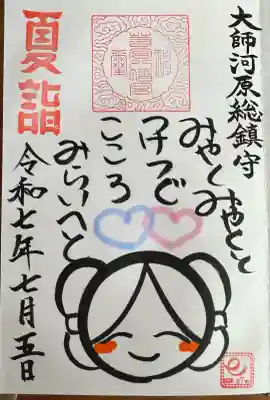 大師河原総鎮守
みやくみやくと
うけつぐ
こころ
みらいへと
夏詣
令和七年七月五日